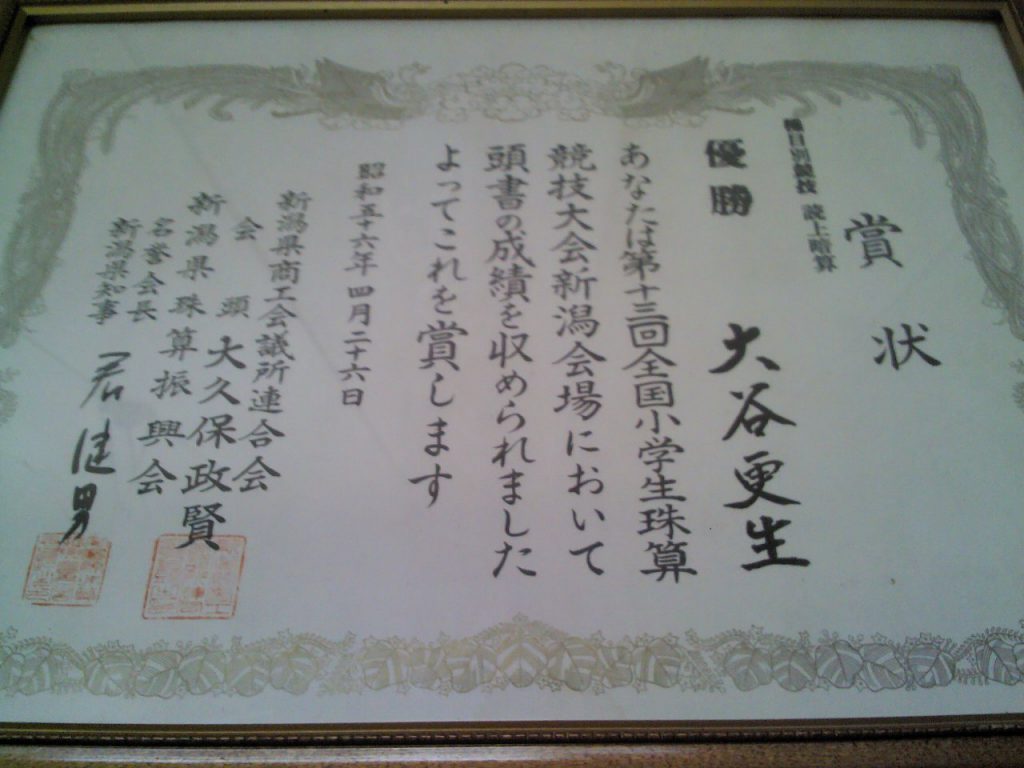 賞状
種目別競技 読上暗算
優勝 大谷更生
あなたは第十三回全国小学生珠算
競技大会新潟会場において
頭書の成績を収められました
よってこれを賞します
昭和五十六年四月二十六日
新潟県商工会議所連合会
会頭 大久保政賢
新潟県珠算振興会
名誉会長
新潟県知事 君健男